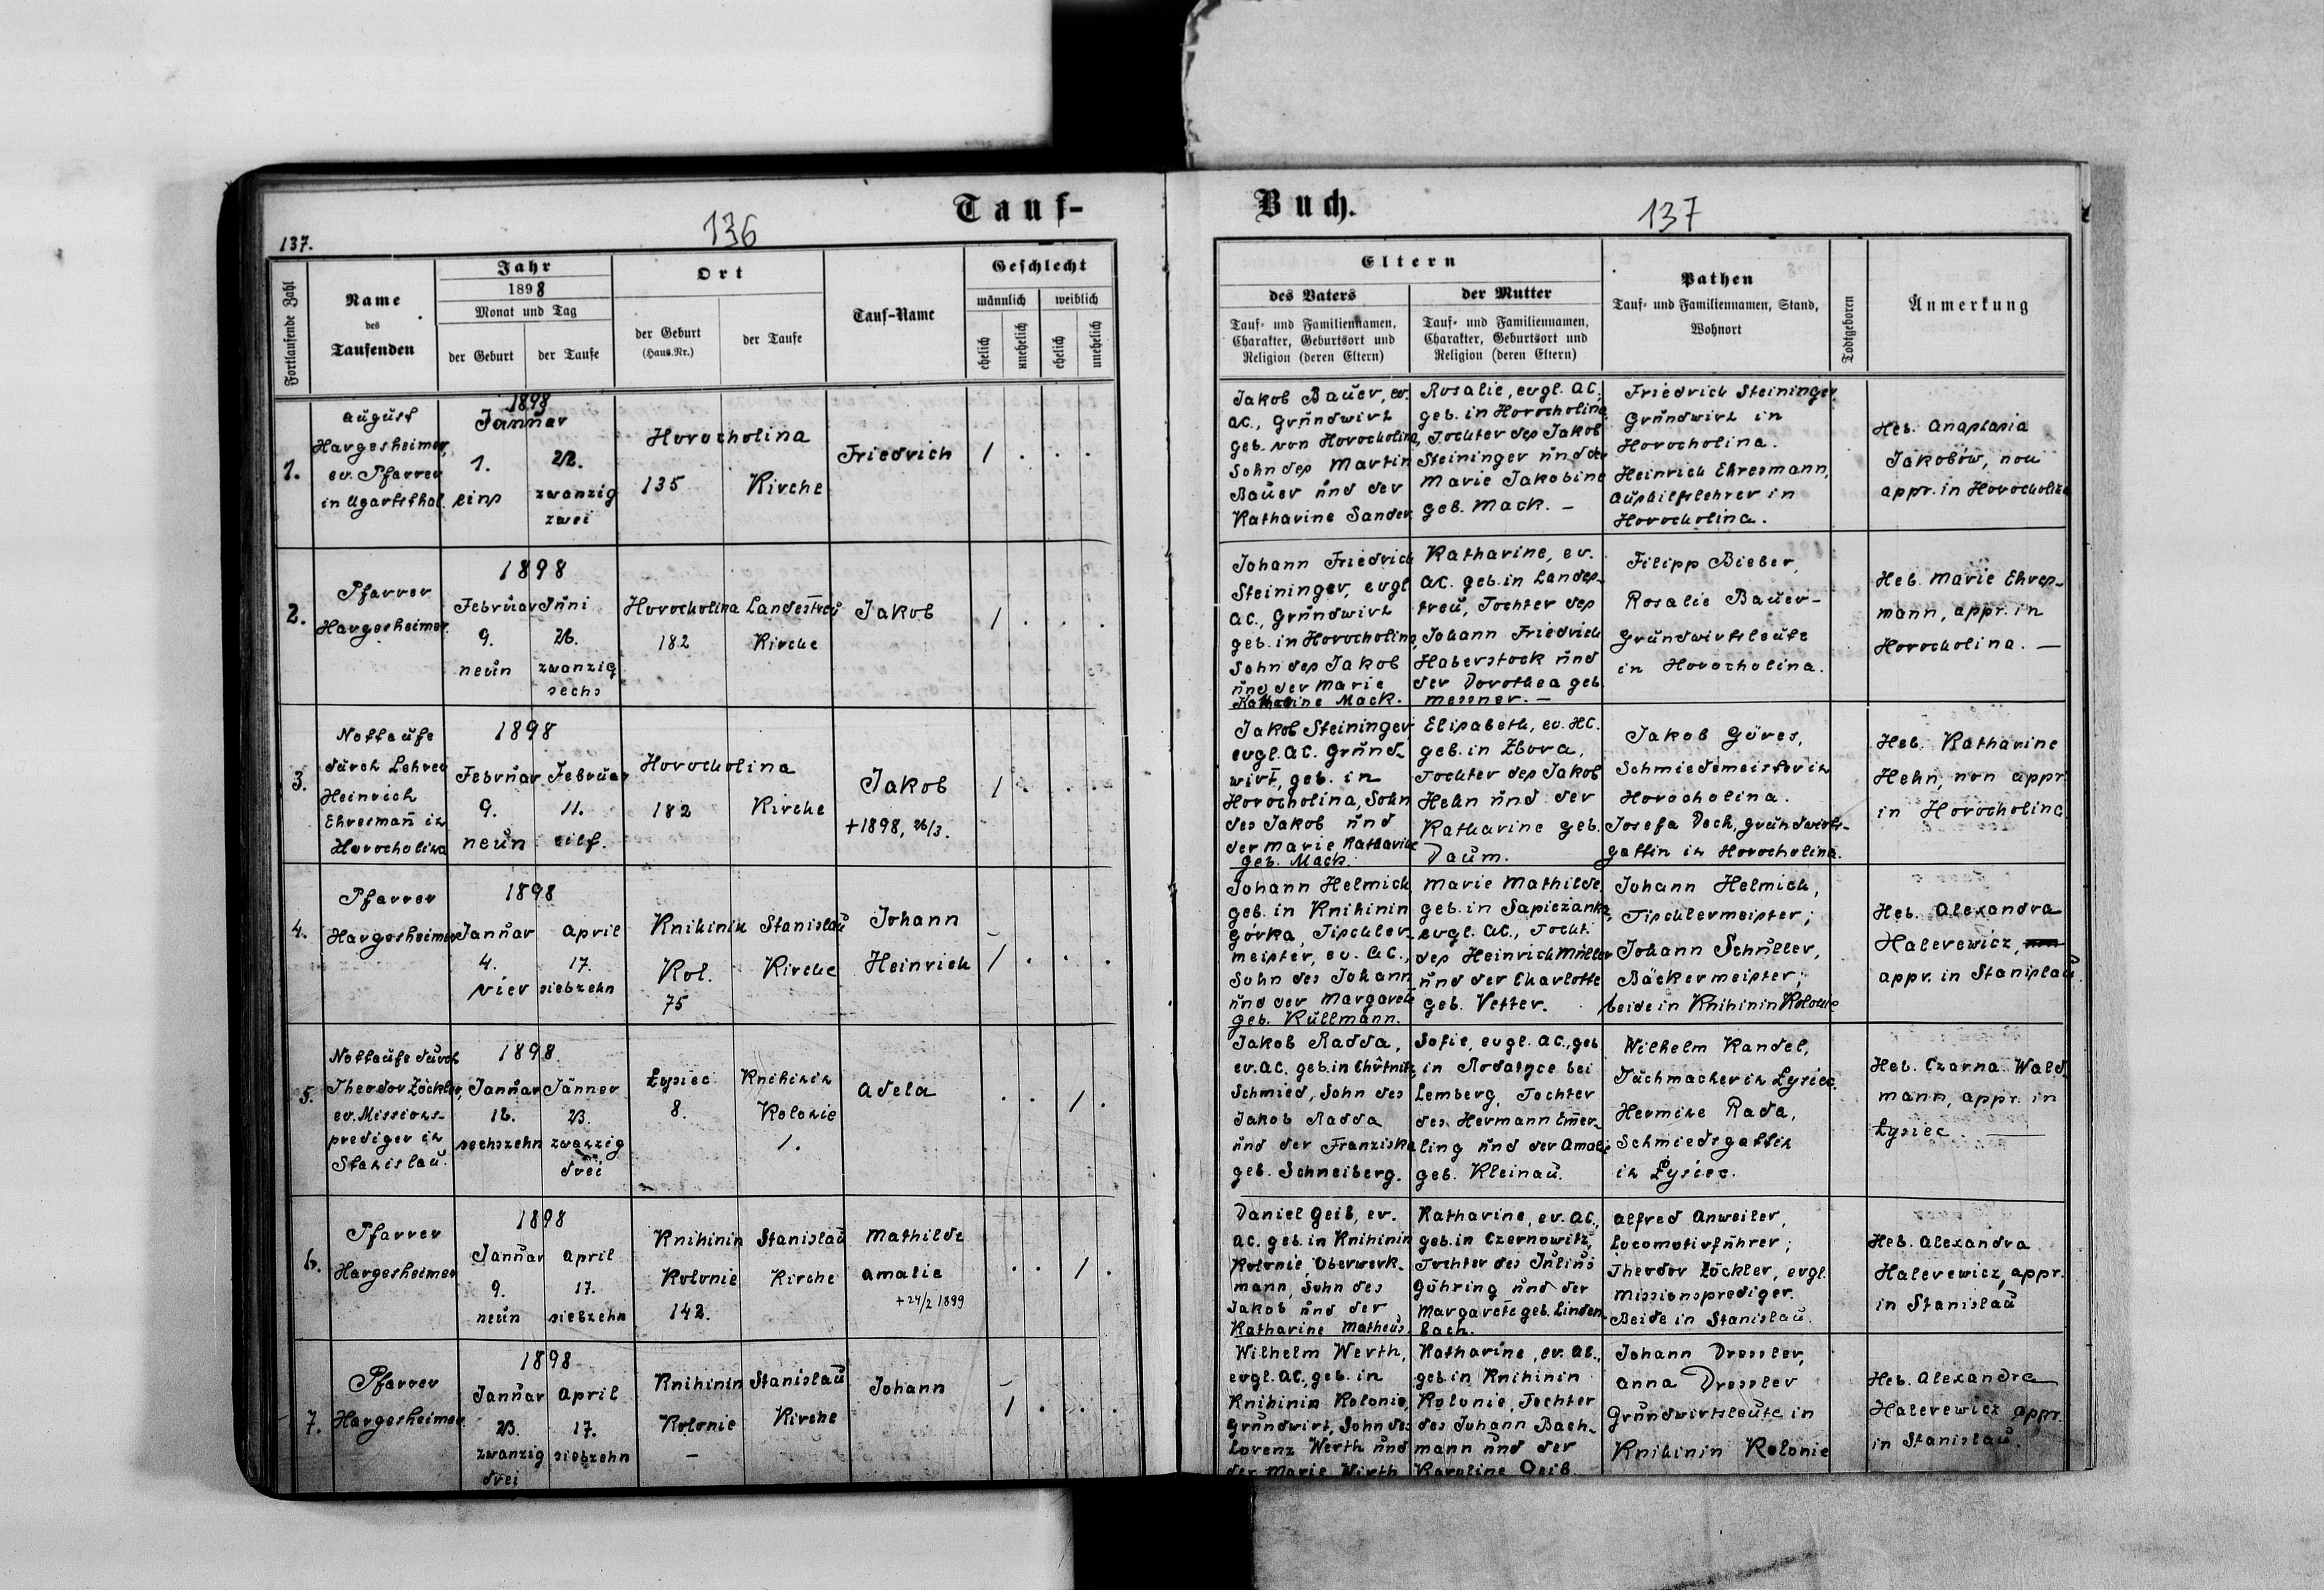 Tauf-
Buch.
136
137
137.
Fortlaufende Zahl
Name
des
Taufenden
Jahr
1898
Monat und Tag
der Geburt
der Taufe
Ort
der Geburt
(Haus-Nr.)
der Taufe
Tauf-Name
Geschlecht
männlich
weiblich
ehelich
unehelich
ehelich
unehelich
Eltern
des Vaters
Tauf- und Familiennamen,
Charakter, Geburtsort und
Religion (deren Eltern)
der Mutter
Tauf- und Familiennamen,
Charakter, Geburtsort und
Religion (deren Eltern)
Pathen
Tauf- und Familiennamen, Stand,
Wohnort
Todtgeboren
Anmerkung
1.
August
Hargesheimer,
ev. Pfarrer
in Ugartsthal.
1898
Jannar
1.
eins
22.
zwanzig
zwei
Horocholina
135
Kirche
Friedrich
1 . . .
Jakob Bauer, ev.
AC., Grundwirt
geb. von Horocholina,
Sohn des Martin
Bauer und der
Katharine Sander
Rosalie, evgl. AC.,
geb. in Horocholina,
Tochter des Jakob
Steininger und der
Marie Jakobine
geb. Mack. –
Friedrich Steininger,
Grundwirt in
Horocholina.
Heinrich Ehresmann,
Aushilfslehrer in
Horocholina.
Heb. Anastasia
Jakobów, non
appr. in Horocholina
2.
Pfarrer
Hargesheimer.
1898
Februar
9.
neun
Juni
26.
zwanzig
sechs
Horocholina
182
Landestreu
Kirche
Jakob
1 . . .
Johann Friedrich
Steininger, evgl
AC., Grundwirt
geb. in Horocholina,
Sohn des Jakob
und der Marie
Katharine Mack.
Katharine, ev.
AC. geb. in Landes-
treu, Tochter des
Johann Friedrich
Haberstock und
der Dorothea geb.
Messner. –
Filipp Bieber,
Rosalie Bauer –
Grundwirtsleute
in Horocholina.
Heb. Marie Ehres-
mann, appr. in
Horocholina. –
3.
Nottaufe
durch Lehrer
Heinrich
Ehresman̄ in
Horocholina
1898
Februar
9.
neun
Februar
11.
eilf.
Horocholina
182
Kirche
Jakob
+1898, 26/3.
1 . . .
Jakob Steininger
evgl. AC. Grund-
wirt, geb. in
Horocholina, Sohn
des Jakob und
der Marie Katharine
geb. Mack.
Elisabeth, ev. HC.
geb. in Zbora,
Tochter des Jakob
Hehn und der
Katharine geb.
Daum.
Jakob Göres,
Schmiedemeister in
Horocholina.
Josefa Dech, Grundwirts-
gattin in Horocholina.
Heb. Katharine
Hehn, non appr.
in Horocholina
4.
Pfarrer
Hargesheimer
1898
Januar
4.
vier
April
17.
siebzehn
Knihinin
Kol.
75
Stanislau
Kirche
Johann
Heinrich
1 . . .
Johann Helmich
geb. in Knihinin
Górka, Tischler-
meister, ev. AC.,
Sohn des Johann
und der Margarete
geb. Küllmann.
Marie Mathilde,
geb. in Sapieżanka,
evgl. AC., Tocht.
des Heinrich Müller
und der Charlotte
geb. Vetter.
Johann Helmich,
Tischlermeister;
Johann Schuller,
Bäckermeister;
beide in Knihinin Kolonie
Heb. Alexandra
Halerewicz,
appr. in Stanislau
5.
Nottaufe durch
Theodor Zöckler,
ev. Missions-
prediger in
Stanislau.
1898.
Januar
16.
sechszehn
Jänner
23.
zwanzig
drei
Łysiec
8.
Knihinin
Kolonie
1.
Adela
. . 1 .
Jakob Radda,
ev. AC. geb. in
Schmied, Sohn des
Jakob Radda
und der Franziska
geb. Schneiberg.
Sofie, evgl. AC., geb
in Rodatyce bei
Lemberg, Tochter
des Hermann Em̄er-
ling und der Amalie
geb. Kleinau.
Wilhelm Kandel,
Tuchmacher in Łysiec.
Hermine Rada,
Schmiedsgattin
in Łysiec.
Heb. Czarna Wald-
mann, appr. in
Łysiec
6.
Pfarrer
Hargesheimer
1898
Januar
9.
neun
April
17.
siebzehn
Knihinin
Kolonie
142.
Stanislau
Kirche
Mathilde
Amalie
+ 24/2 1899
. . 1 .
Daniel Geib, ev.
AC. geb. in Knihinin
Kolonie, Oberwerk-
mann, Sohn des
Jakob und der
Katharine Matheus.
Katharine, ev. AC.,
geb. in Czernowitz,
Tochter des Julius
Göhring und der
Margarete geb. Linden-
bach.
Alfred Anweiler,
Locomotivführer;
Theodor Zöckler, evgl.
Missionsprediger.
Beide in Stanislau.
Heb. Alexandra
Halerewicz, appr.
in Stanislau
7.
Pfarrer
Hargesheimer
1898
Januar
23.
zwanzig
drei
April
17.
siebzehn
Knihinin
Kolonie
–
Stanislau
Kirche
Johann
1 . . .
Wilhelm Werth,
evgl. AC. geb. in
Knihinin Kolonie,
Grundwirt, Sohn des
Lorenz Werth und
der Marie Wirth
Katharine, ev. AC.,
geb. in Knihinin
Kolonie, Tochter
des Johann Bach-
mann und der
Karoline Geib.
Johann Dressler,
Anna Dressler
Grundwirtsleute in
Knihinin Kolonie
Heb. Alexandra
Halerewicz appr.
in Stanislau.